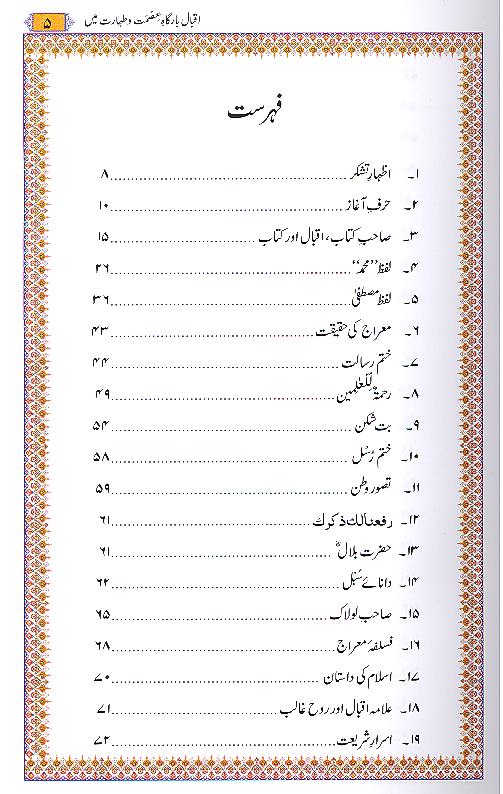 اقبال بارگاہِ عصمت و طہارت میں ۵
فہرست
۱۔ اظہارِ تشکر ۸
۲۔ حرفِ آغاز ۱۰
۳۔ صاحب کتاب، اقبال اور کتاب ۱۵
۴۔ لفظ ”محمد“ ۲۶
۵۔ لفظ مصطفیٰ ۳۶
۶۔ معراج کی حقیقت ۴۳
۷۔ ختم رسالت ۴۴
۸۔ رحمۃ للعٰلمین ۴۹
۹۔ بت شکن ۵۴
۱۰۔ ختم رُسُل ۵۸
۱۱۔ تصور وطن ۵۹
۱۲۔ رفعنا لك ذكرك ۶۱
۱۳۔ حضرت بلالؓ ۶۱
۱۴۔ دانائے سُبل ۶۲
۱۵۔ صاحب لولاک ۶۵
۱۶۔ فسلفۂ معراج ۶۸
۱۷۔ اسلام کی داستان ۷۰
۱۸۔ علامہ اقبال اور روح غالب ۷۱
۱۹۔ اسرارِ شریعت ۷۲